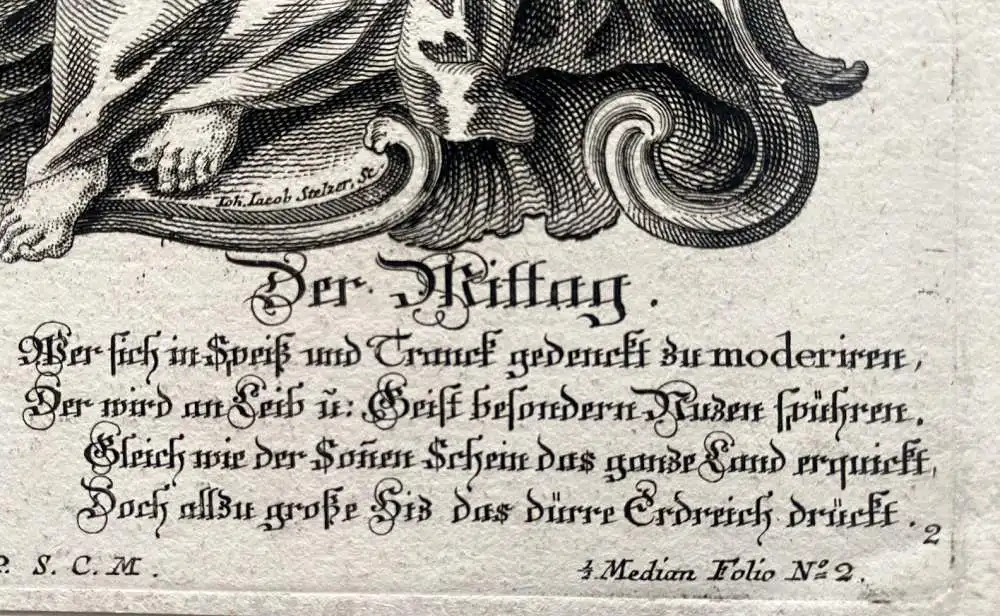 Joh. Jacob Stelzer, Sc.
Der Mittag.
Wer sich in Speiß und Tranck gedenckt zu moderiren,
Der wird an Leib ū: Geist besondern Nuzen spühren.
Gleich wie der Soñen Schein das ganze Land erquickt,
Doch allzu große Hiz das dürre Erdreich drückt.
2
P. S. C. M.
½ Median Folio Nº 2.